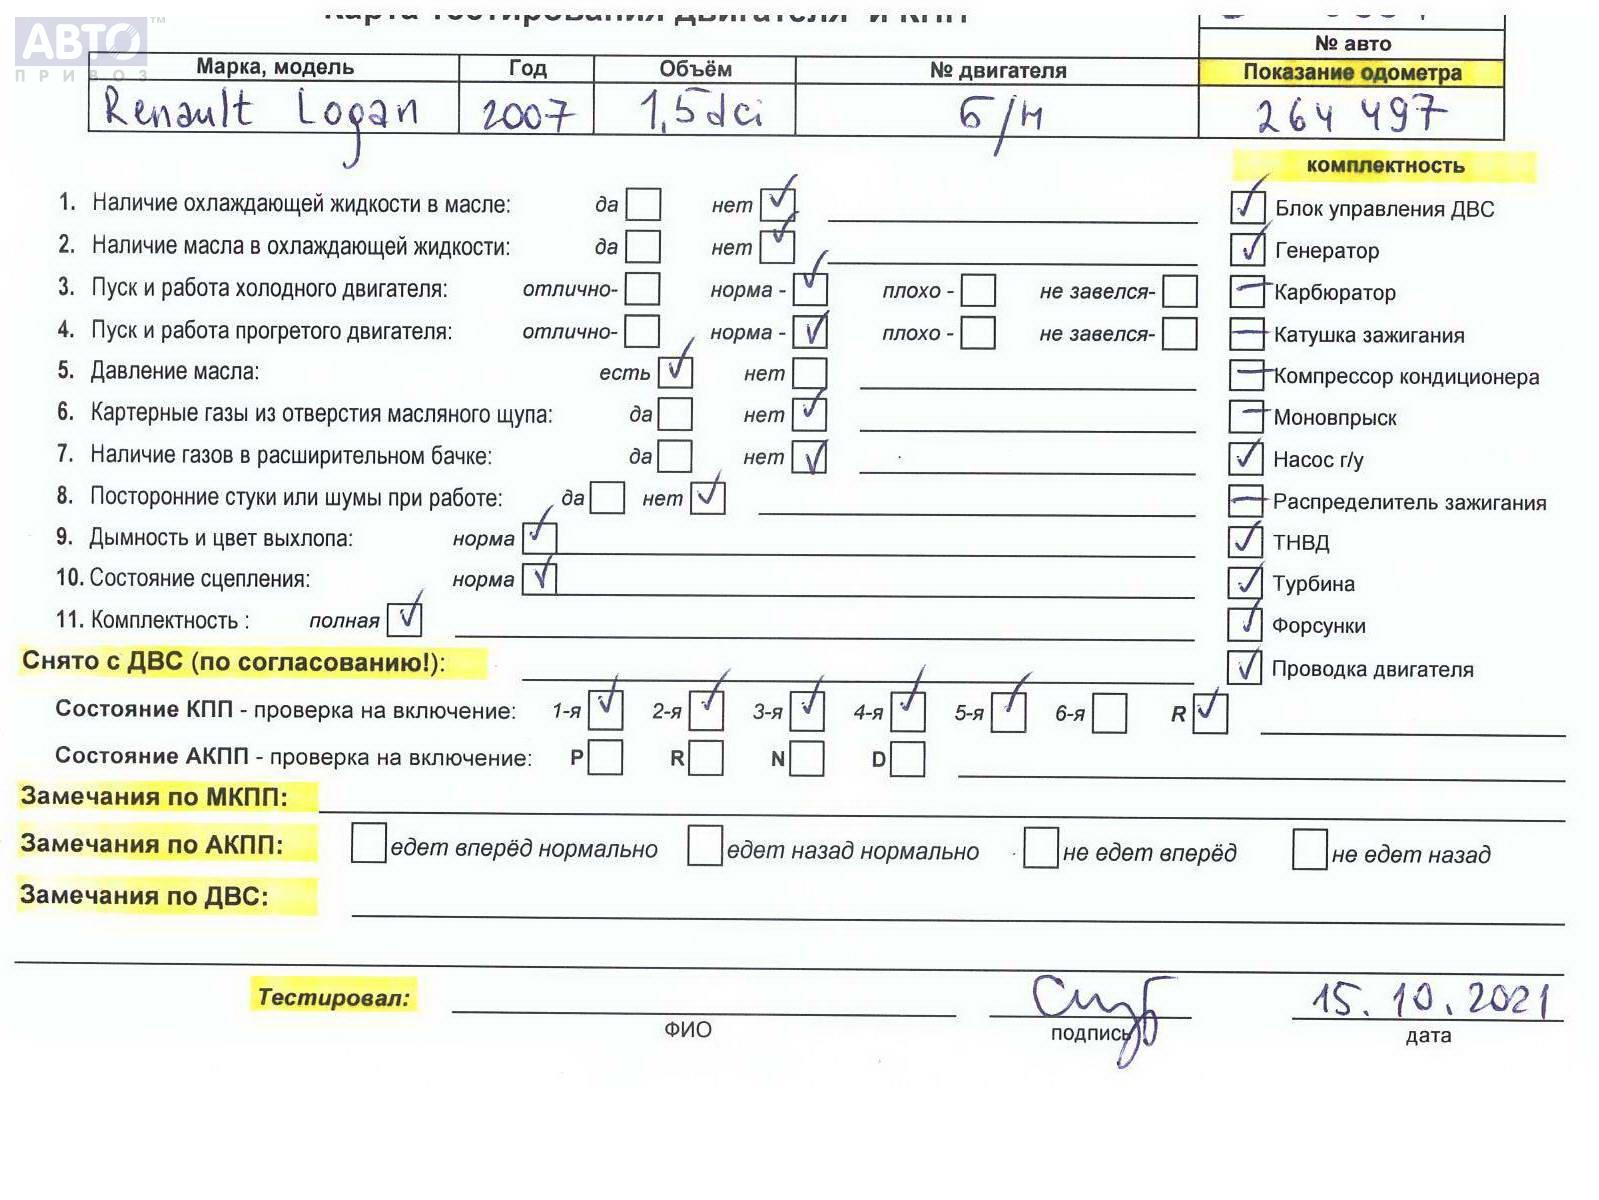 Карта тестирования двигателя и КПП
АВТО™
ПРИВОЗ
№ авто
Марка, модель Год Объём № двигателя Показание одометра
Renault Logan 2007 1,5dci б/н 264 497
комплектность
1. Наличие охлаждающей жидкости в масле: да нет
Блок управления ДВС
2. Наличие масла в охлаждающей жидкости: да нет
Генератор
3. Пуск и работа холодного двигателя: отлично- норма - плохо - не завелся-
Карбюратор
4. Пуск и работа прогретого двигателя: отлично- норма - плохо - не завелся-
Катушка зажигания
5. Давление масла: есть нет
Компрессор кондиционера
6. Картерные газы из отверстия масляного щупа: да нет
Моновпрыск
7. Наличие газов в расширительном бачке: да нет
Насос г/у
8. Посторонние стуки или шумы при работе: да нет
Распределитель зажигания
9. Дымность и цвет выхлопа: норма
ТНВД
10. Состояние сцепления: норма
Турбина
11. Комплектность : полная
Форсунки
Снято с ДВС (по согласованию!):
Проводка двигателя
Состояние КПП - проверка на включение: 1-я 2-я 3-я 4-я 5-я 6-я R
Состояние АКПП - проверка на включение: P R N D
Замечания по МКПП:
Замечания по АКПП: едет вперёд нормально едет назад нормально не едет вперёд не едет назад
Замечания по ДВС:
Тестировал: 15.10.2021
ФИО подпись дата